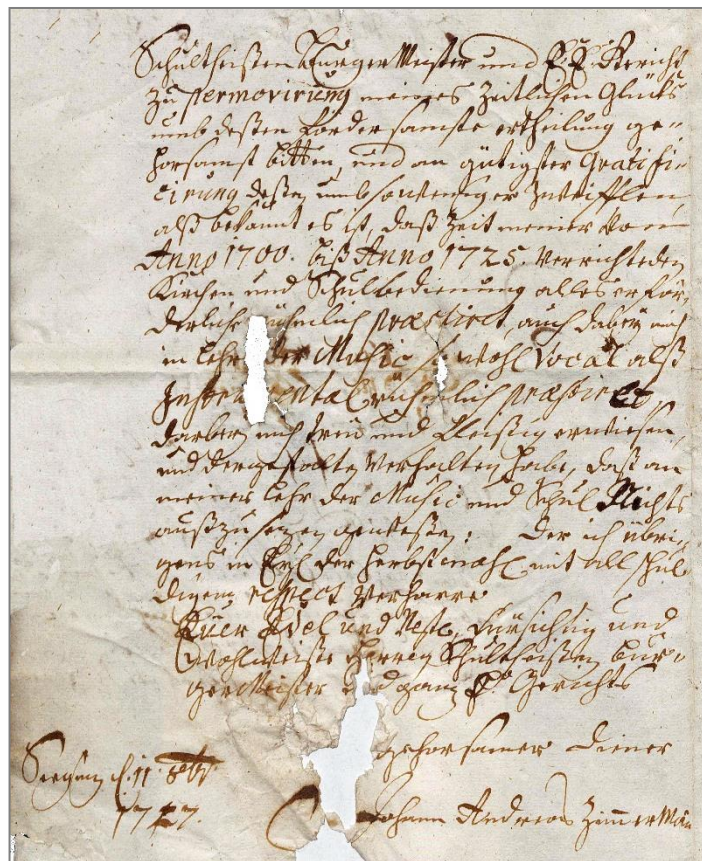 Schultheißen Burger Meister und E. E. Gericht
zu permovirung meines Zeitlichen Glücks
umb deßen fordersambste ertheilung ge-
horsamst bitten, und an gütigster Gratifi-
cirung deßen umb so weniger Zweifflen,
alß bekannt es ist, daß Zeit meiner von
Anno 1700. biß Anno 1725. Verrichteden
Kirchen und Schulbedienung alles erfor-
derliche rühmlich præstiret, auch dabey mich
in Lehr der Music so wohl Vocal alß
Instrumental rühmlich præstiret,
darbey mich treu und fleißig erwiesen,
und dergestalten Verhalten habe, daß an
meiner Lehr der Music und Schul Nichts
außzusezen gewesen: Der ich übri-
gens in der mit all schul
digem respect Verharre
Euer Edel und Veste, fürsichtig und
Wohlweiße Herren Schultheißen Bur-
germeister und ganz E. Gerichts
gehorsamer Diener
d. 11. 8br.
1727.
Johann Andreas Zimmerman